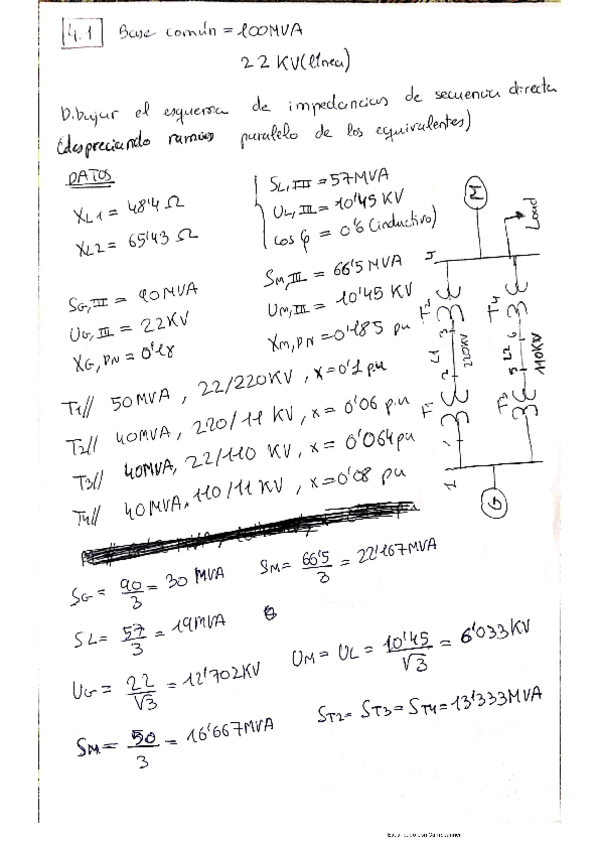 4.1 Base común = 100MVA
22 KV (línea)
Dibujar el esquema de impedancias de secuencia directa
(despreciando ramas paralelo de los equivalentes)
DATOS
XL1 = 48'4 Ω
XL2 = 65'43 Ω
SL,III = 57MVA
UL,III = 10'45 KV
cos φ = 0'6 (inductivo)
SG,III = 90MVA
UG,III = 22KV
XG,PN = 0'18
SM,III = 66'5 MVA
UM,III = 10'45 KV
XM,PN = 0'185 pu
T1// 50MVA, 22/220KV, x=0'1 p.u
T2// 40MVA, 220/11 KV, x = 0'06 p.u
T3// 40MVA, 22/110 KV, x = 0'064pu
T4// 40MVA, 110/11 KV, x=0'08 pu
M
Load
T4
3
6
2
L1
220KV
5
L2
110KV
T1
T3
1
G
SG = 90/3 = 30 MVA
SM = 66'5/3 = 22'167MVA
SL = 57/3 = 19MVA
UM = UL = 10'45/√3 = 6'033KV
UG = 22/√3 = 12'702KV
SM = 50/3 = 16'667MVA
ST2 = ST3 = ST4 = 13'333MVA